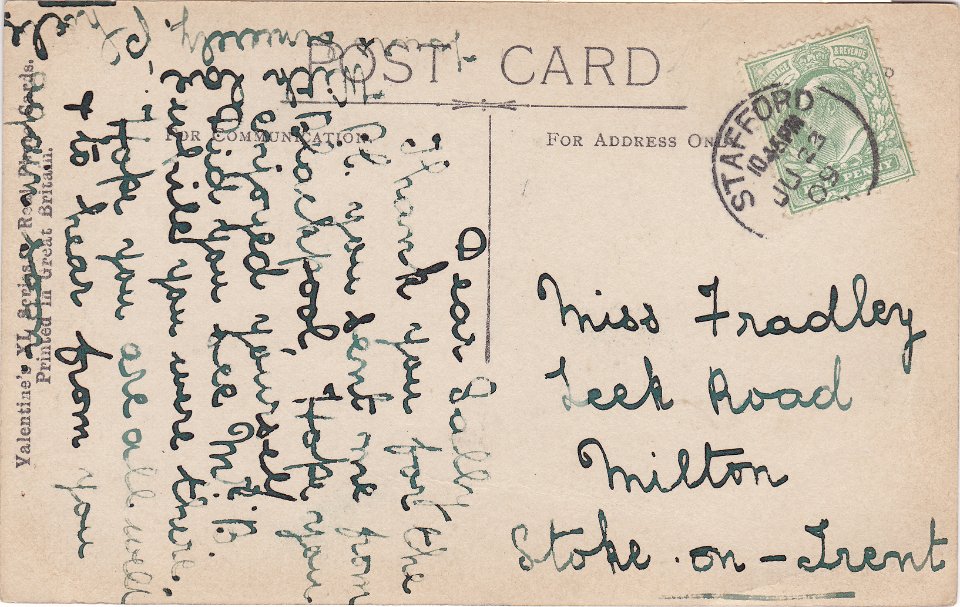 POST CARD
FOR COMMUNICATION.
FOR ADDRESS ONLY
Valentine's XL Series Real Photo Cards.
Printed in Great Britain.
POSTAGE & REVENUE
PENNY
STAFFORD
JU 23
09
Dear Sally
Thank you for the
P.C. you sent me from
Blackpool. Hope you
enjoyed yourself
Did you see Mr B
while you were there.
Hope you are all well
+ to hear from you
sincerely
Miss Fradley
Leek Road
Milton
Stoke-on-Trent